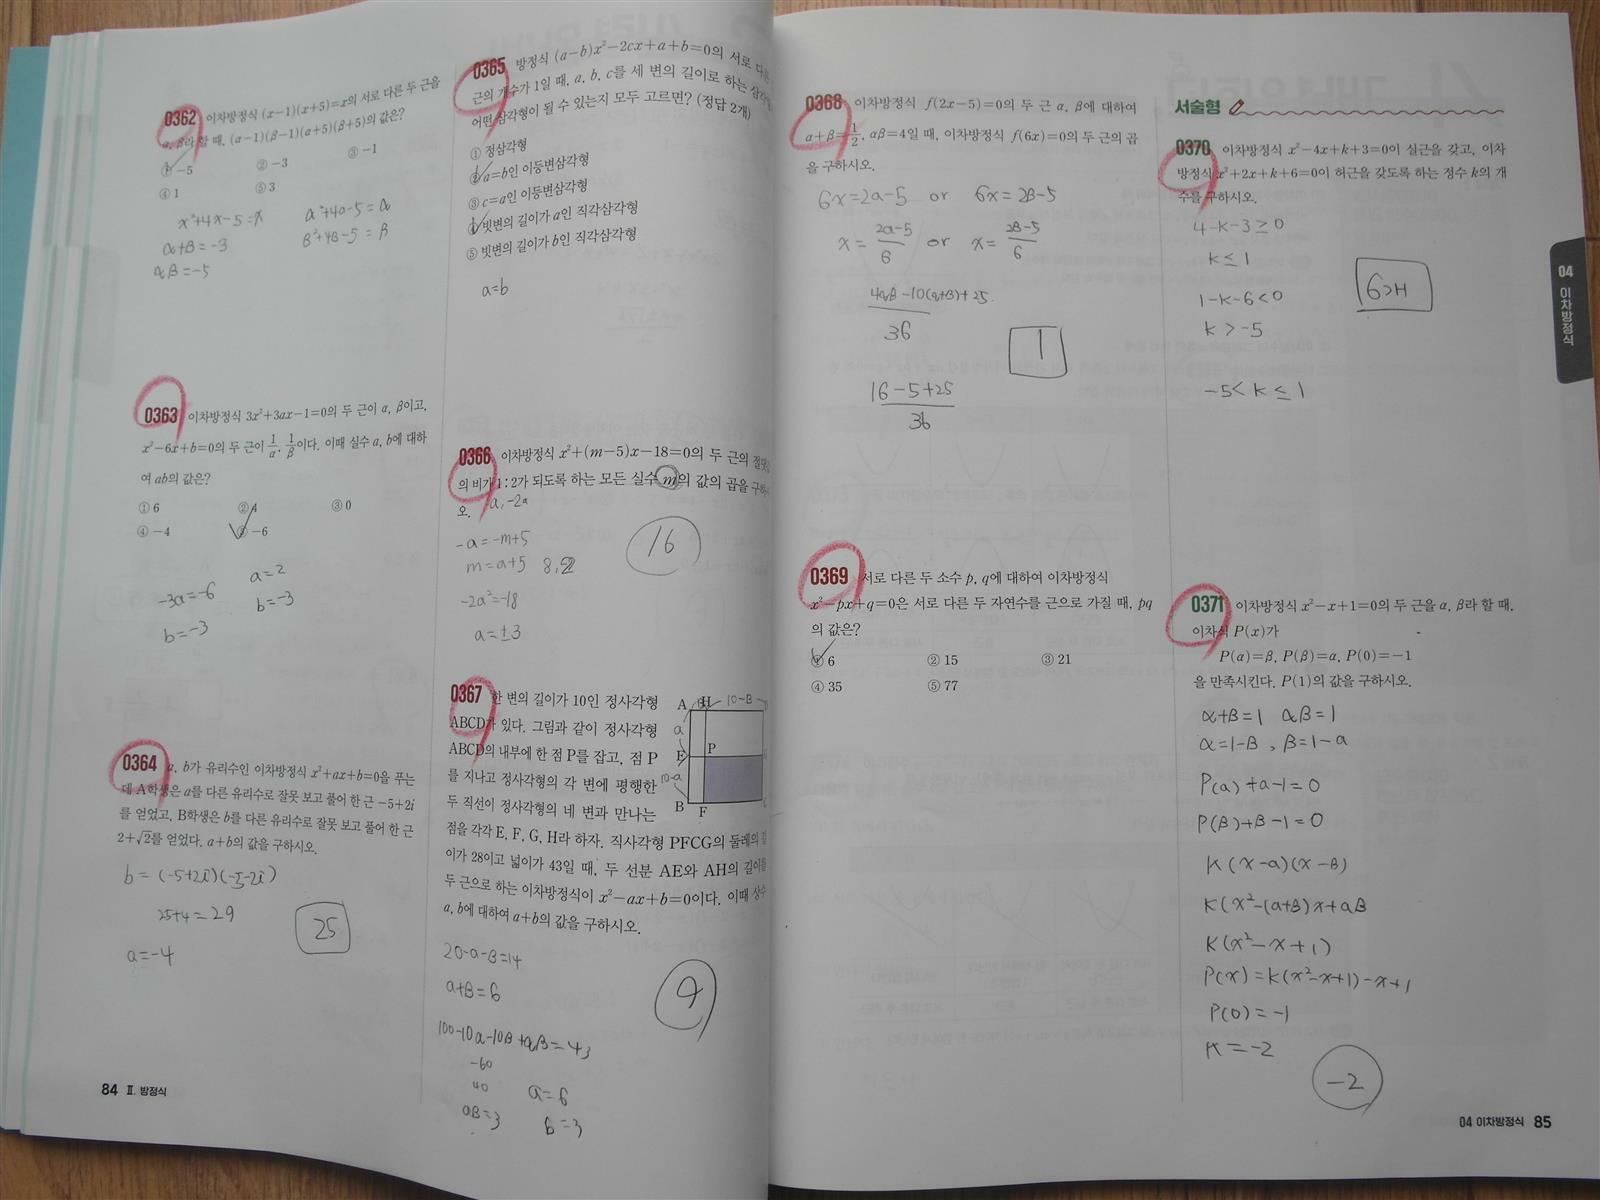 0362 이차방정식 (x-1)(x+5)=x의 서로 다른 두 근을
α, β라 할 때, (α-1)(β-1)(α+5)(β+5)의 값은?
① -5 ② -3 ③ -1
④ 1 ⑤ 3
x²+4x-5=x α²+4α-5=α
α+β=-3 β²+4β-5=β
αβ=-5
0363 이차방정식 3x²+3ax-1=0의 두 근이 α, β이고,
x²-6x+b=0의 두 근이 1/α, 1/β이다. 이때 실수 a, b에 대하
여 ab의 값은?
① 6 ② 4 ③ 0
④ -4 ⑤ -6
-3a=-6 a=2
b=-3 b=-3
0364 a, b가 유리수인 이차방정식 x²+ax+b=0을 푸는
데 A학생은 a를 다른 유리수로 잘못 보고 풀어 한 근 -5+2i
를 얻었고, B학생은 b를 다른 유리수로 잘못 보고 풀어 한 근
2+√2를 얻었다. a+b의 값을 구하시오.
b=(-5+2i)(-5-2i)
25+4=29
25
a=-4
84 Ⅱ. 방정식
0365 방정식 (a-b)x²-2cx+a+b=0의 서로 다른
근의 개수가 1일 때, a, b, c를 세 변의 길이로 하는 삼각형
어떤 삼각형이 될 수 있는지 모두 고르면? (정답 2개)
① 정삼각형
② a=b인 이등변삼각형
③ c=a인 이등변삼각형
④ 빗변의 길이가 a인 직각삼각형
⑤ 빗변의 길이가 b인 직각삼각형
a=b
0366 이차방정식 x²+(m-5)x-18=0의 두 근의 절댓
의 비가 1:2가 되도록 하는 모든 실수 m의 값의 곱을 구하
오. a, -2a
-a=-m+5
m=a+5 8, 2
16
-2a²=-18
a=±3
0367 한 변의 길이가 10인 정사각형
ABCD가 있다. 그림과 같이 정사각형
ABCD의 내부에 한 점 P를 잡고, 점 P
를 지나고 정사각형의 각 변에 평행한
두 직선이 정사각형의 네 변과 만나는
점을 각각 E, F, G, H라 하자. 직사각형 PFCG의 둘레의 길
이가 28이고 넓이가 43일 때, 두 선분 AE와 AH의 길이를
두 근으로 하는 이차방정식이 x²-ax+b=0이다. 이때 상수
a, b에 대하여 a+b의 값을 구하시오.
A β H 10-β
α
E P
10-α
B F
20-α-β=14
α+β=6
9
100-10α-10β+αβ=43
-60
40
αβ=3
a=6
b=3
0368 이차방정식 f(2x-5)=0의 두 근 α, β에 대하여
α+β=1/2, αβ=4일 때, 이차방정식 f(6x)=0의 두 근의 곱
을 구하시오.
6x=2α-5 or 6x=2β-5
x=(2α-5)/6 or x=(2β-5)/6
(4αβ-10(α+β)+25)/36
1
(16-5+25)/36
0369 서로 다른 두 소수 p, q에 대하여 이차방정식
x²-px+q=0은 서로 다른 두 자연수를 근으로 가질 때, pq
의 값은?
① 6 ② 15 ③ 21
④ 35 ⑤ 77
서술형
0370 이차방정식 x²-4x+k+3=0이 실근을 갖고, 이차
방정식 x²+2x+k+6=0이 허근을 갖도록 하는 정수 k의 개
수를 구하시오.
4-k-3≥0
k≤1
1-k-6<0
k>-5
6개
-5<k≤1
0371 이차방정식 x²-x+1=0의 두 근을 α, β라 할 때,
이차식 P(x)가
P(α)=β, P(β)=α, P(0)=-1
을 만족시킨다. P(1)의 값을 구하시오.
α+β=1 αβ=1
α=1-β, β=1-α
P(α)+α-1=0
P(β)+β-1=0
k(x-α)(x-β)
k(x²-(α+β)x+αβ
k(x²-x+1)
P(x)=k(x²-x+1)-x+1
P(0)=-1
k=-2
-2
04 이차방정식
04 이차방정식 85